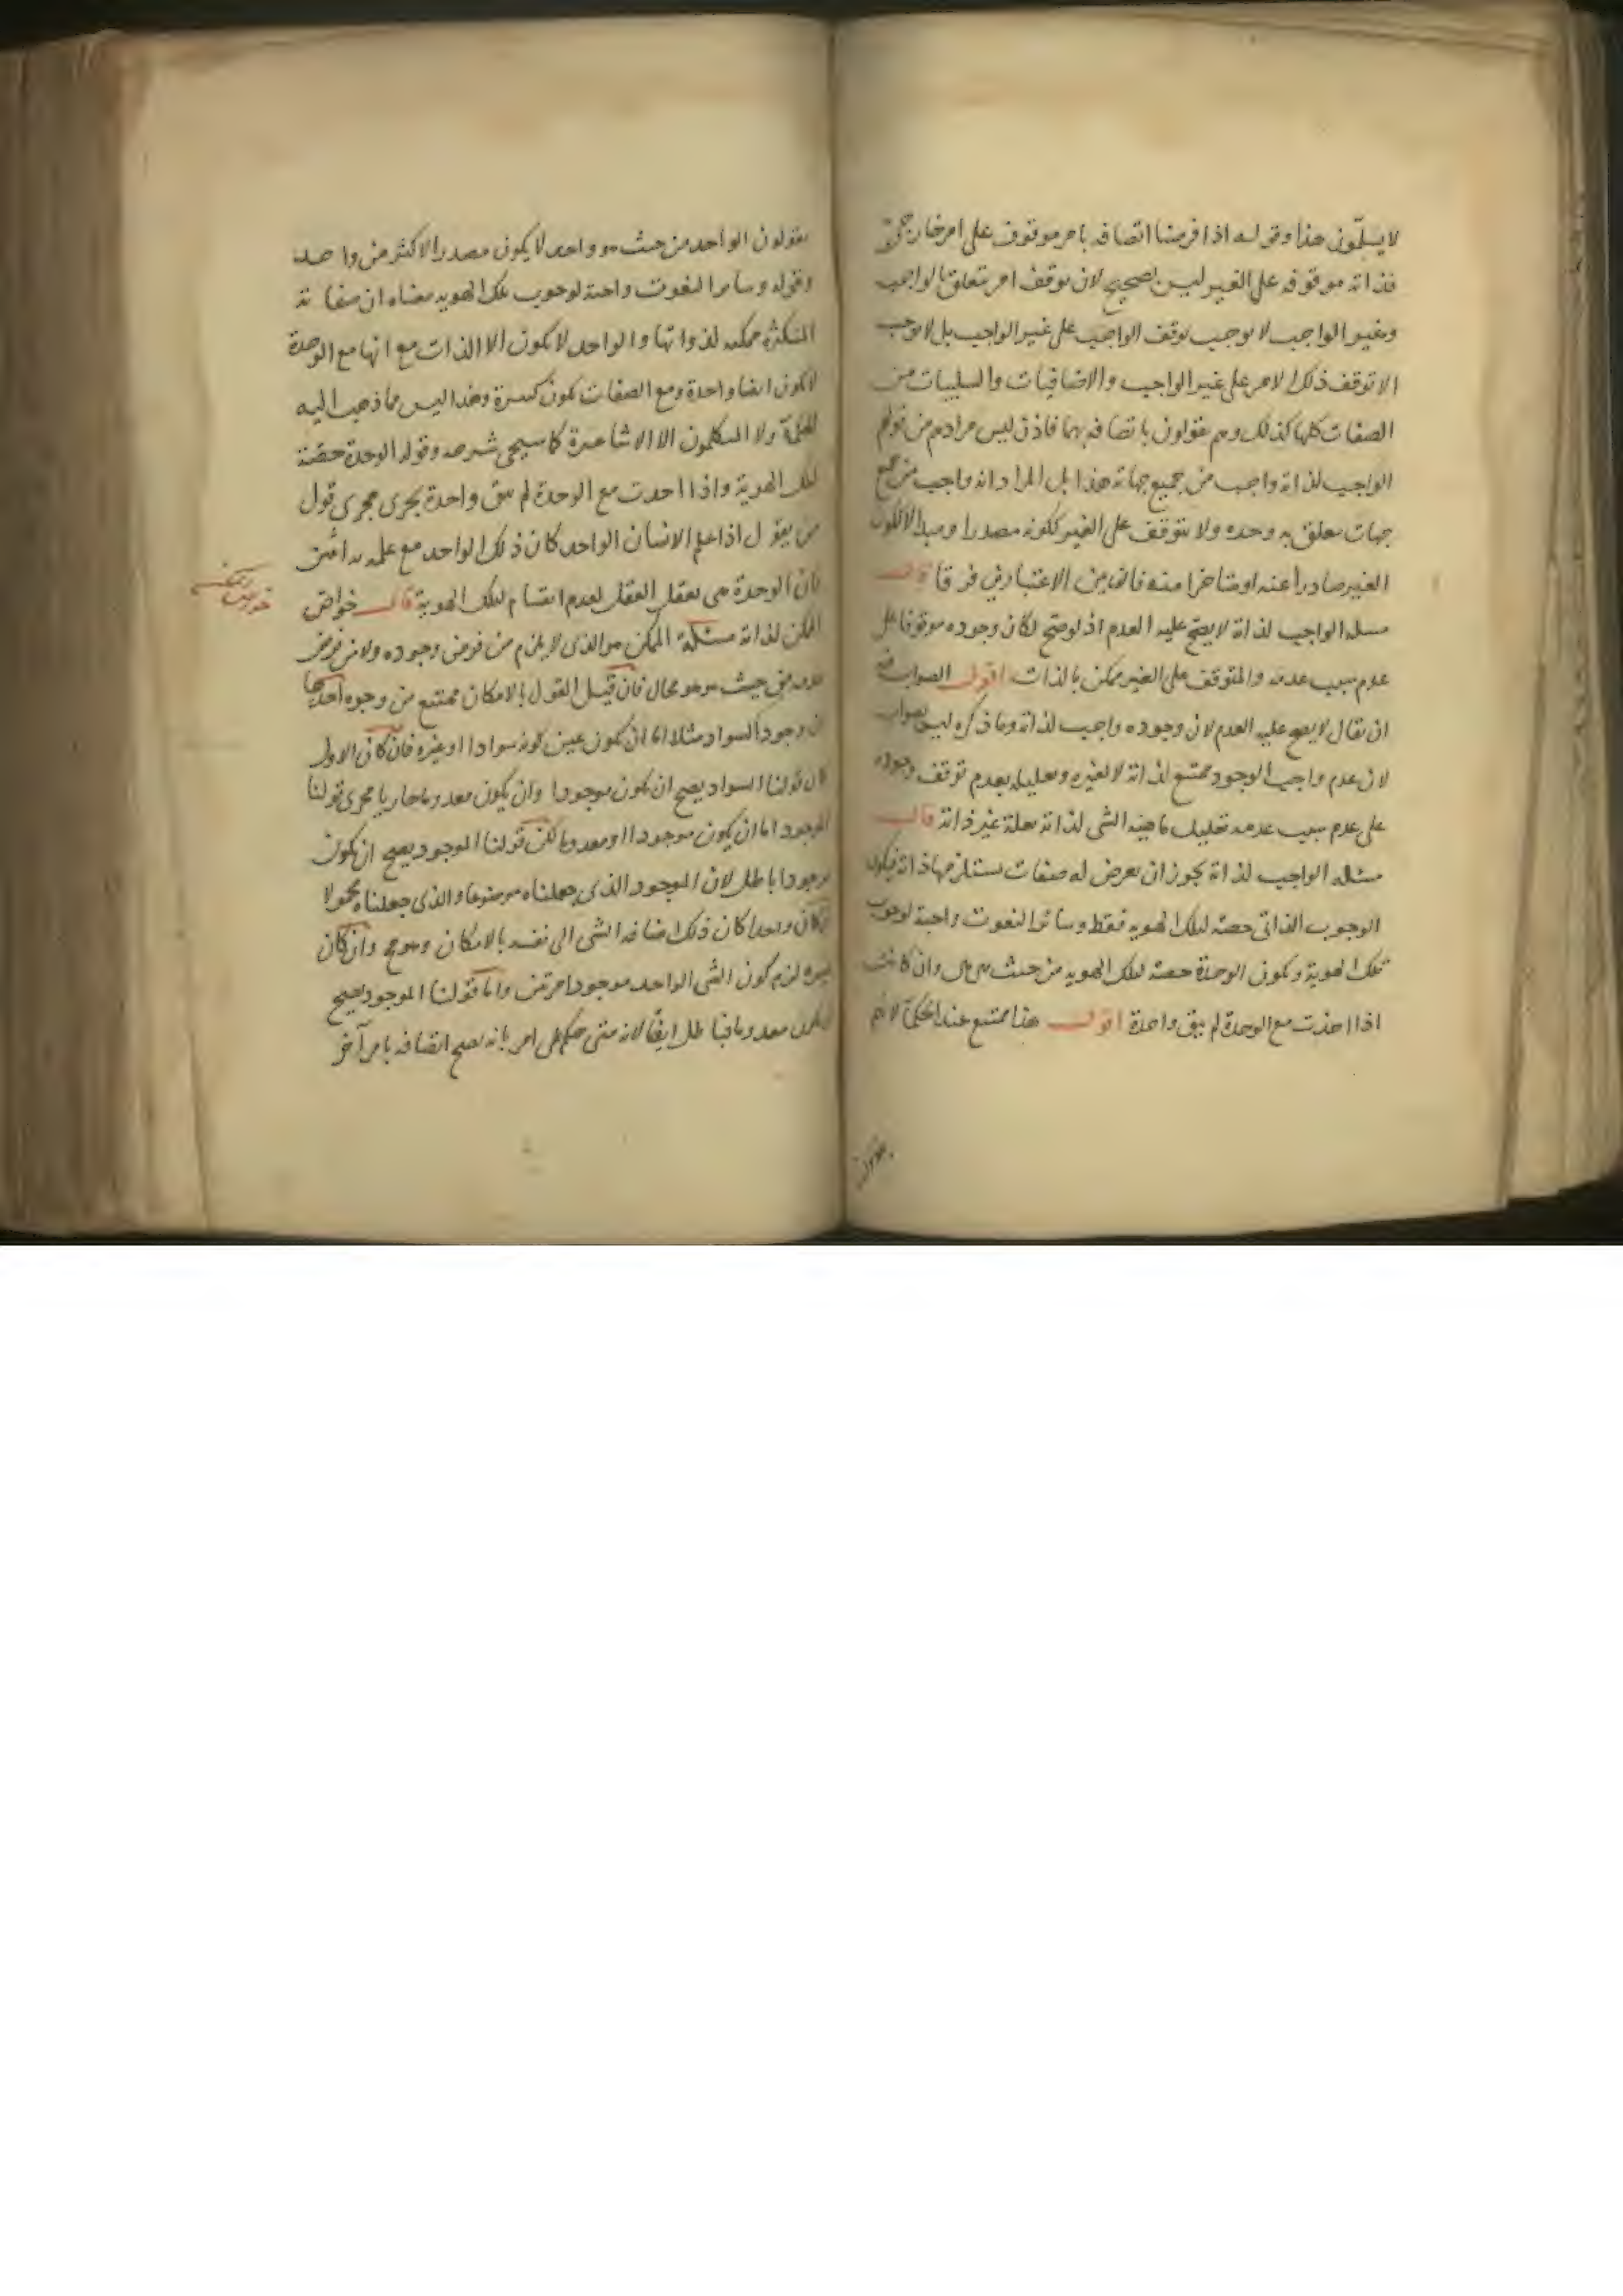 لا يسلّمون هذا وقوله اذا فرضنا اتصافه بامر موقوف على امر خارجى
فذاته موقوفه على الغير ليس بصحيح لان توقف امر يتعلق بالواجب
وغير الواجب لا يوجب توقف الواجب على غير الواجب بل لا يوجب
الا توقف ذلك الامر على غير الواجب والاضافيات والسلبيات من
الصفات كلها كذلك وهم يقولون باتصافه بهما فاذن ليس مرادهم من قولهم
الواجب لذاته واجب من جميع جهاته هذا بل المراد انه واجب من جميع
جهات يتعلق به وحده ولا يتوقف على الغير ككونه مصدرا ومبدأ لا لكون
الغير صادرا عنه او متاخرا منه فان بين الاعتبارين فرقا قال
مسله الواجب لذاته لا يصح عليه العدم اذ لو صح لكان وجوده موقوفا على
عدم سبب عدمه والمتوقف على الغير ممكن بالذات اقول الصواب فيه
ان يقال لا يصح عليه العدم لان وجوده واجب لذاته وما ذكره ليس بصواب
لان عدم واجب الوجود ممتنع لذاته لا لغيره وتعليله بعدم توقف وجوده
على عدم سبب عدمه تعليل ماهية الشى لذاته بعلة غير ذاته قال
مسله الواجب لذاته يجوز ان يعرض له صفات يستلزمها ذاته فيكون
الوجوب الذاتى حصة لتلك الهويه فقط وسائر النعوت واجبة لوجوب
تلك الهوية ويكون الوحدة حصة لتلك الهويه من حيث هى هى وان كانت
اذا اخذت مع الوحدة لم يبق واحدة اقول هذا ممتنع عند الحكما لانهم
يقولون
يقولون الواحد من حيث هو واحد لا يكون مصدرا لاكثر من واحد
وقوله وسائر النعوت واجبة لوجوب تلك الهويه معناه ان صفاته
المتكثرة ممكنه لذواتها والواحد لا يكون الا الذات مع انها مع الوحدة
لا يكون ايضا واحدة ومع الصفات يكون كثيرة وهذا ليس مما ذهب اليه
الحكما ولا المتكلمون الا الاشاعرة كما سيجى شرحه وقوله الوحدة حصة
لتلك الهوية واذا اخذت مع الوحدة لم يبق واحدة يجرى مجرى قول
من يقول اذا علم الانسان الواحد كان ذلك الواحد مع علمه به اثنين
فان الوحدة هى تعقل العقل لعدم انقسام تلك الهوية قال خواص
الممكن لذاته مسئلة الممكن هو الذى لا يلزم من فرض وجوده ولا من فرض
عدمه من حيث هو هو محال فان قيل القول بالامكان ممتنع من وجوه احدها
ان وجود السواد مثلا اما ان يكون عين كونه سوادا او غيره فان كان الاول
كان قولنا السواد يصح ان يكون موجودا وان يكون معدوما جاريا مجرى قولنا
الموجود اما ان يكون موجودا او معدوما لكن قولنا الموجود يصح ان يكون
موجودا باطل لان الموجود الذى جعلناه موضوعا والذى جعلناه محمولا
ان كان واحدا كان ذلك اضافه الشى الى نفسه بالامكان وهو مح وان كان
غيره لزم كون الشى الواحد موجودا مرتين واما قولنا الموجود يصح
ان يكون معدوما فباطل ايضا لانه متى حكم على امر بانه يصح اتصافه بامر آخر